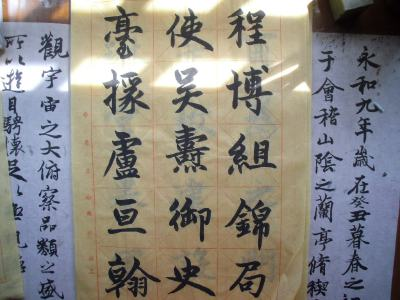 永和九年歲在癸丑暮春之
于會稽山陰之蘭亭脩禊
程博組錦局
使吳燾御史
臺掾盧亘翰
觀宇宙之大俯察品類之盛
所以遊目騁懷足以極視